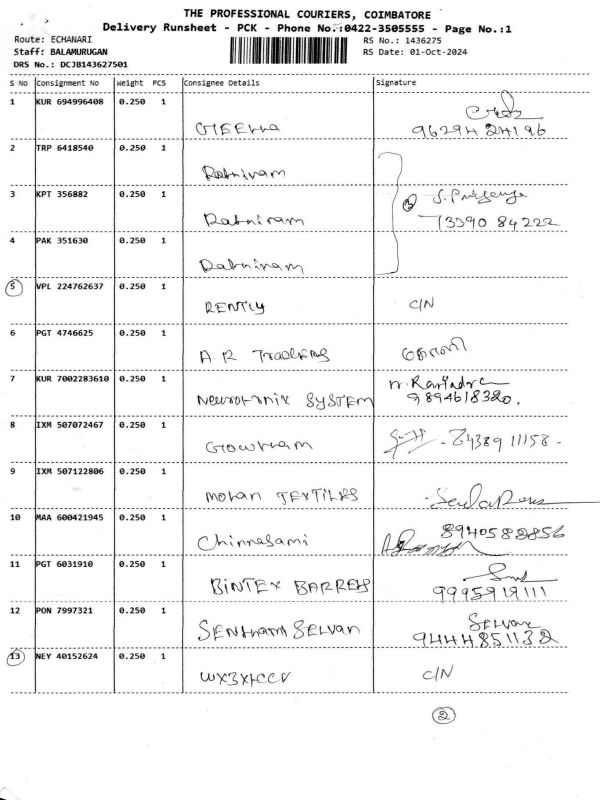 THE PROFESSIONAL COURIERS, COIMBATORE
Delivery Runsheet - PCK - Phone No.:0422-3505555 - Page No.:1
Route: ECHANARI
RS No.: 1436275
Staff: BALAMURUGAN
RS Date: 01-Oct-2024
DRS No.: DCJB143627501
S No Consignment No Weight PCS Consignee Details Signature
1 KUR 694996408 0.250 1
9629424196
2 TRP 6418540 0.250 1 Ratniram
3 KPT 356882 0.250 1 Ratniram
73390 84222
4 PAK 351630 0.250 1 Ratniram
5 VPL 224762637 0.250 1 RENTLY C/N
6 PGT 4746625 0.250 1 A.R Traders
7 KUR 7002283610 0.250 1 Neurotronix SYSTEM
9894618320.
8 IXM 507072467 0.250 1 Gowtham - 84389 11158 -
9 IXM 507122806 0.250 1 Mohan TEXTILES
10 MAA 600421945 0.250 1 Chinnasami 8940582856
11 PGT 6031910 0.250 1 BINTEX BARREHS
9995919111
12 PON 7997321 0.250 1 SENTHAMI SELVAN Selvan
9444851132
13 NEY 40152624 0.250 1 C/N
2